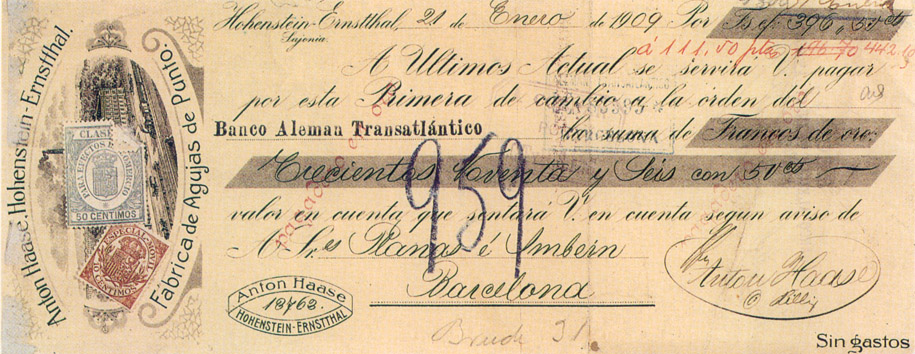 Anton Haase, Hohenstein-Ernstthal.
Fábrica de Agujas de Punto.
CLASE
PARA EFECTOS DE COMERCIO
50 CENTIMOS
ESPECIAL MOVIL
10 CENTIMOS
Hohenstein-Ernstthal, 21 de Enero de 1909 Por Fs ef. 396,50 cts
Sajonia
á 111.70 pta 442
A Ultimos Actual se servirá V. pagar
por esta Primera de cambio a la orden del
Banco Aleman Transatlántico la suma de Francos de oro:
Trecientos Noventa y Séis con 50 cts
valor en cuenta que sentará V. en cuenta segun aviso de
A Sres Planas é Imbern
Barcelona
959
Anton Haase
18763
HOHENSTEIN-ERNSTTHAL
Anton Haase
Sin gastos